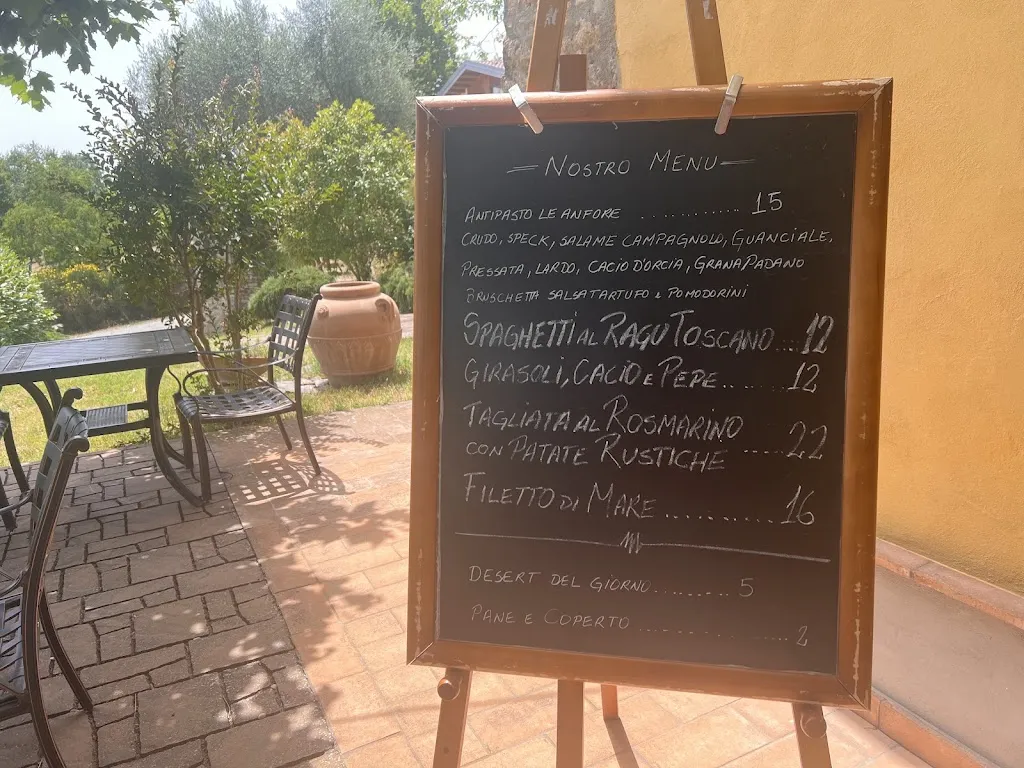 NOSTRO MENU
ANTIPASTO LE ANFORE ............ 15
CRUDO, SPECK, SALAME CAMPAGNOLO, GUANCIALE,
PRESSATA, LARDO, CACIO D'ORCIA, GRANA PADANO
BRUSCHETTA SALSA TARTUFO e POMODORINI
SPAGHETTI AL RAGU TOSCANO ... 12
GIRASOLI, CACIO e PEPE ...... 12
TAGLIATA AL ROSMARINO
CON PATATE RUSTICHE ..... 22
FILETTO DI MARE ........... 16
DESERT DEL GIORNO ......... 5
PANE E COPERTO .................... 2